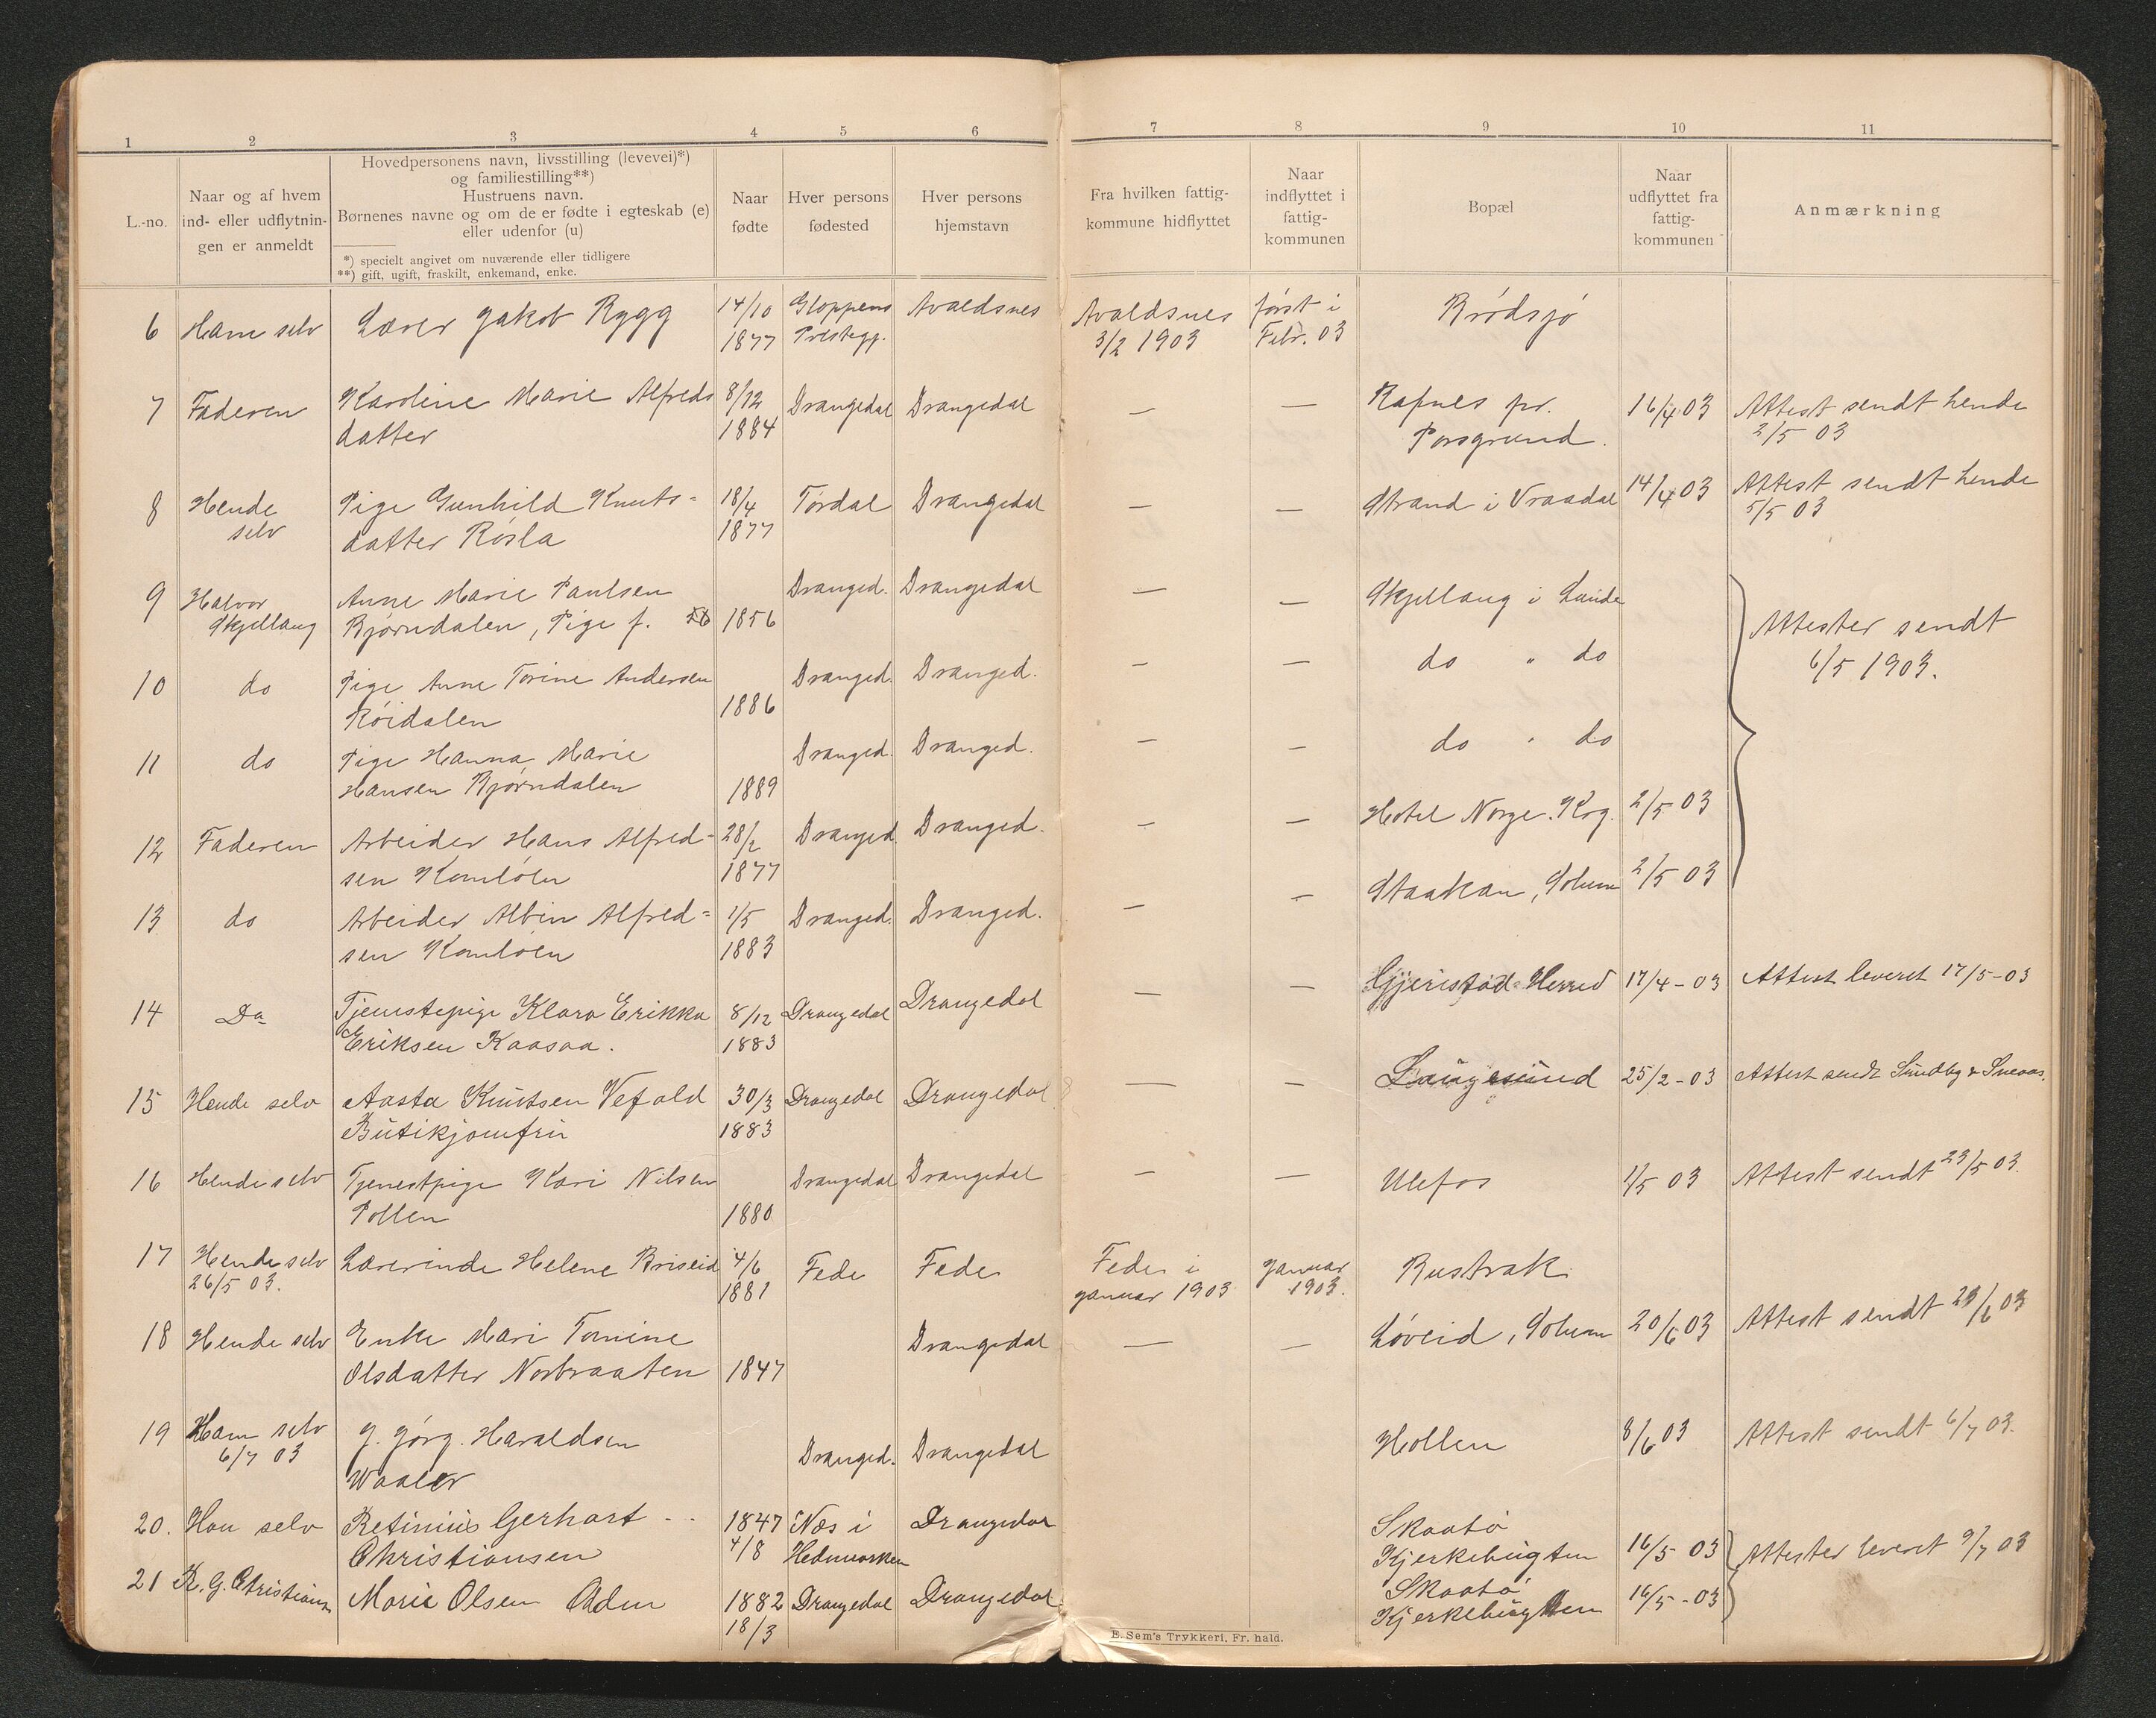 1 2 3 4 5 6 7 8 9 10 11
L.-no.
Naar og af hvem
ind- eller udflytnin-
gen er anmeldt
Hovedpersonens navn, livsstilling (levevei)*)
og familiestilling**)
Hustruens navn.
Børnenes navne og om de er fødte i egteskab (e)
eller udenfor (u)
*) specielt angivet om nuværende eller tidligere
**) gift, ugift, fraskilt, enkemand, enke.
Naar
fødte
Hver persons
fødested
Hver persons
hjemstavn
Fra hvilken fattig-
kommune hidflyttet
Naar
indflyttet i
fattig-
kommunen
Bopæl
Naar
udflyttet fra
fattig-
kommunen
Anmærkning
6 Ham selv Lærer Jakob Rygg 14/10 Gloppens Avaldsnes Avaldsnes først i Brødsjø
1877 Præstegj. 3/2 1903 Febr. 03
7 Faderen Karoline Marie Alfreds 8/12 Drangedal Drangedal — — Rafnes pr. 16/4 03 Attest sendt hende
datter 1884 Porsgrund. 2/5 03
8 Hende Pige Gunhild Knuts- 18/4 Tørdal Drangedal — — Strand i Vraadal 14/4 03 Attest sendt hende
selv datter Røsla 1877 5/5 03
9 Halvor Anne Marie Paulsen Dranged. Drangedal — — Skjellaug i Lunde
Skjellaug Bjørndalen, Pige f. 1856 Attester sendt
10 do Pige Anne Torine Andersen Dranged. Dranged. — — do " do 6/5 1903.
Røidalen 1886
11 do Pige Hanna Marie Dranged. Dranged. — — do " do
Hansen Bjørndalen 1889
12 Faderen Arbeider Hans Alfred- 28/2 Dranged. Dranged. — — Hotel Norge. Krg. 2/5 03
sen Komløen 1877
13 do Arbeider Albin Alfred- 1/5 Dranged. Dranged. — — Staakan, Solum 2/5 03
sen Komløen 1883
14 Do Tjenstepige Klara Erikka 8/12 Drangedal Drangedal — — Gjeristad Herred 17/4 - 03 Attest leveret 17/5 - 03
Eriksen Kaasaa. 1883
15 Hende selv Aasta Knutsen Vefald 30/3 Drangedal Drangedal — — Langesund 25/2 - 03 Attest sendt Sundby &
Butikjomfru 1883
16 Hende selv Tjenestpige Kari Nilsen Drangedal Drangedal — — Ulefos 1/5 03 Attest sendt 23/5 03.
Pollen 1880
17 Hende selv Lærerinde Helene Briseid 4/6 Fede Fede Fede i Januar Rustrak
26/5 03. 1881 Januar 1903 1903.
18 Hende selv Enke Mari Tomine Drangedal — — Løveid, Solum 20/6 03 Attest sendt 23/6 03
Olsdatter Norbraaten 1847
19 Ham selv J. Jørg. Haraldsen Dranged. Drangedal Hollen 8/6 03 Attest sendt 6/7 03.
6/7 03 Waaler
20. Han selv Retinius Gerhart 1847 Næs i Drangedal Skaatø
Christiansen 4/8 Hedmarken Kjerkebugten 16/5 03 Attester leveret 9/7 03
21 R. G. Christians Marie Olsen Odden 1882 Drangedal Drangedal Skaatø 16/5 - 03
18/3 Kjerkebugten
E. Sem's Trykkeri, Fr.hald.